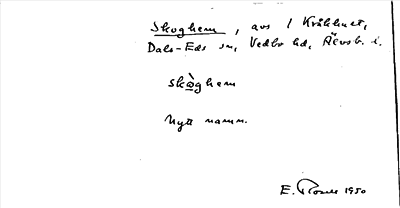 Skoghem, avs / Kråkhult,
Dals-Eds sn, Vedbo hd, Älvsb. l.
skòghem
Nytt namn.
E. 1950